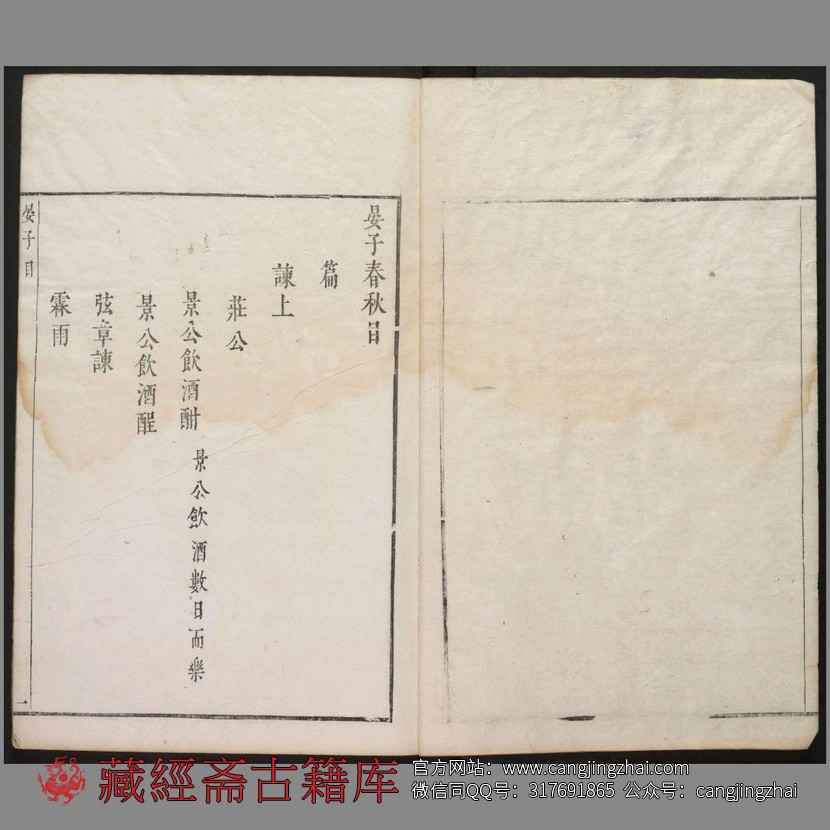 晏子春秋目
篇
諫上
莊公
景公飲酒酣 景公飲酒數日而樂
景公飲酒酲
弦章諫
霖雨
晏子目
一
藏經斋古籍库
官方网站：www.cangjingzhai.com
微信同QQ号：317691865 公众号：cangjingzhai